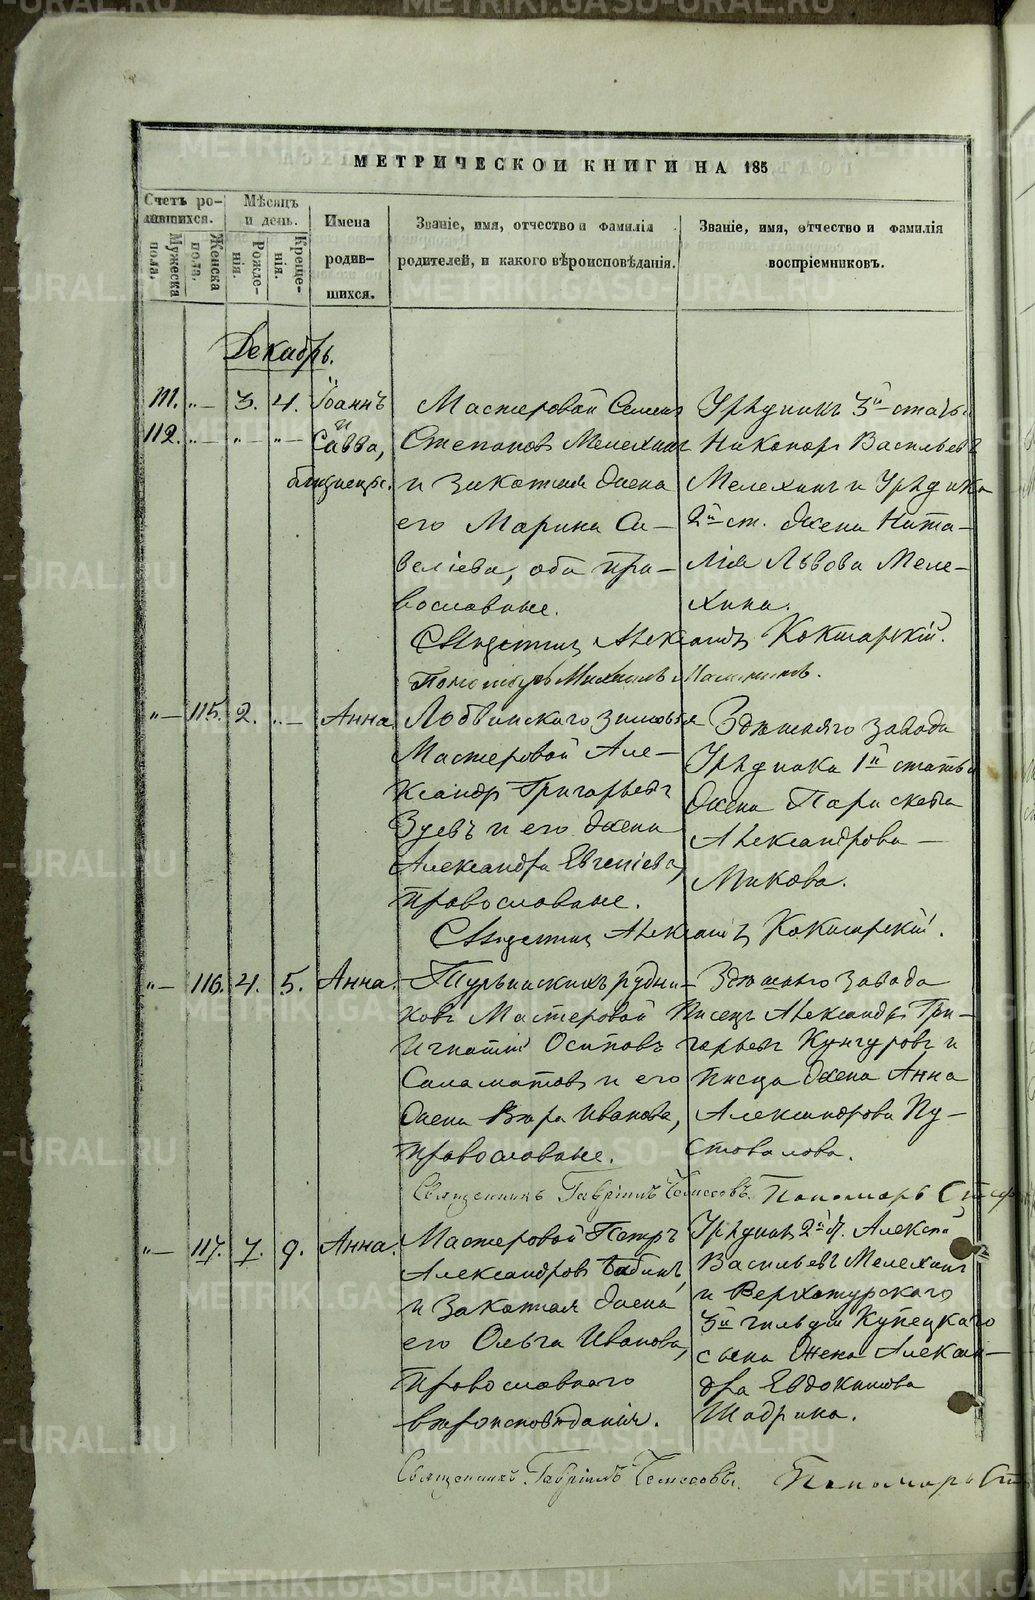 МЕТРИЧЕСКОЙ КНИГИ НА 185
Счетъ родившихся.
Мужеска пола.
Женска пола.
Мѣсяцъ и день.
Рожденія.
Крещенія.
Имена родившихся.
Званіе, имя, отчество и фамилія родителей, и какого вѣроисповѣданія.
Званіе, имя, отчество и фамилія воспріемниковъ.
Декабрь.
111. "— 3. 4. Іоаннъ
и
112. "— "— "— Савва,
близнецы.
Мастеровой Семенъ
Степановъ Мелехинъ
и законная жена
его Марина Са-
веліева, оба пра-
вославные.
Урядникъ 3й статьи
Никаноръ Васильевъ
Мелехинъ и Урядника
2й ст. жена Ната-
лія Львова Меле-
хина.
Священникъ Александръ Кокшарскій.
Пономарь Михаилъ
"— 115. 2. "— Анна
Лобвинскаго зимовья
Мастеровой Але-
ксандръ Григорьевъ
Зуевъ и его жена
Александра Евгеніева,
православные.
Здѣшняго завода
Урядника 1й статьи
жена Параскева
Александрова
Микова.
Священникъ Александръ Кокшарскій.
"— 116. 4. 5. Анна.
Турьинскихъ рудни-
ковъ Мастеровой
Игнатій Осиповъ
Саламатовъ и его
жена Вѣра Иванова,
православные.
Здѣшняго завода
Писецъ Александръ Гри-
горьевъ Кунгуровъ и
писца жена Анна
Александрова Пу-
стовалова.
Священникъ Гавріилъ Пономарь
"— 117. 7. 9. Анна.
Мастеровой Петръ
Александровъ Бабинъ,
и законная жена
его Ольга Иванова,
православнаго
вѣроисповѣданія.
Урядникъ 2й Алексѣй
Васильевъ Мелехинъ
и Верхотурскаго
3й гильдіи Купецкаго
сына жена Алексан-
дра Евдокимова
Шадрина.
Священникъ Гавріилъ Пономарь
METRIKI.GASO-URAL.RU